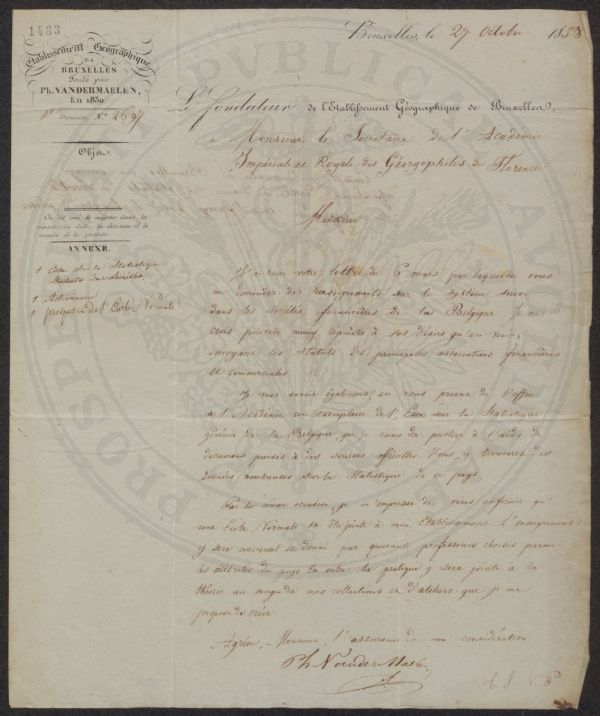 1483
Etablissement Géographique
DE
BRUXELLES
Fondé par
PH. VANDERMAELEN,
En 1830.
1e Division N.° 2697
Objet.
On est prié de rappeler dans la
réponse la date, la division et le
numéro de la présente.
ANNEXE.
1 Essai sur la Statistique
Statuts des sociétés
1 Actionnaire
1 prospectus de l'Ecole Normale
Bruxelles, le 27 Octobre 1838
Le fondateur de l'Etablissement Géographique de Bruxelles,
a Monsieur le Secrétaire de l'Académie
Impériale et Royale des Géorgophiles de Florence
Monsieur
J'ai reçu votre lettre du 6 mars par laquelle vous
me demandez des renseignements sur le système suivi
dans les sociétés financières de la Belgique. Je ne
crois pouvoir mieux répondre à vos désirs qu'en vous
envoyant les statuts des principales associations financières
et commerciales
Je vous envoie également, en vous priant de l'offrir
à l'Académie un exemplaire de l'Essai sur la Statistique
générale de la Belgique que je viens de publier à l'aide de
documens puisés à des sources officielles. Vous y trouverez des
données nombreuses sur la Statistique de ce pays.
Par la même occasion, je m'empresse de vous informer qu'
une Ecole Normale va être jointe à mon Etablissement. L'enseignement
y sera universel et donné par quarante professeurs choisis parmi
les célébrités du pays. En outre la pratique y sera jointe à la
théorie au moyen de mes collections et d'ateliers que je me
propose de créer
Agréez, Monsieur, l'assurance de ma considération
Ph Vandermaelen
PROSPE
PUBLIC